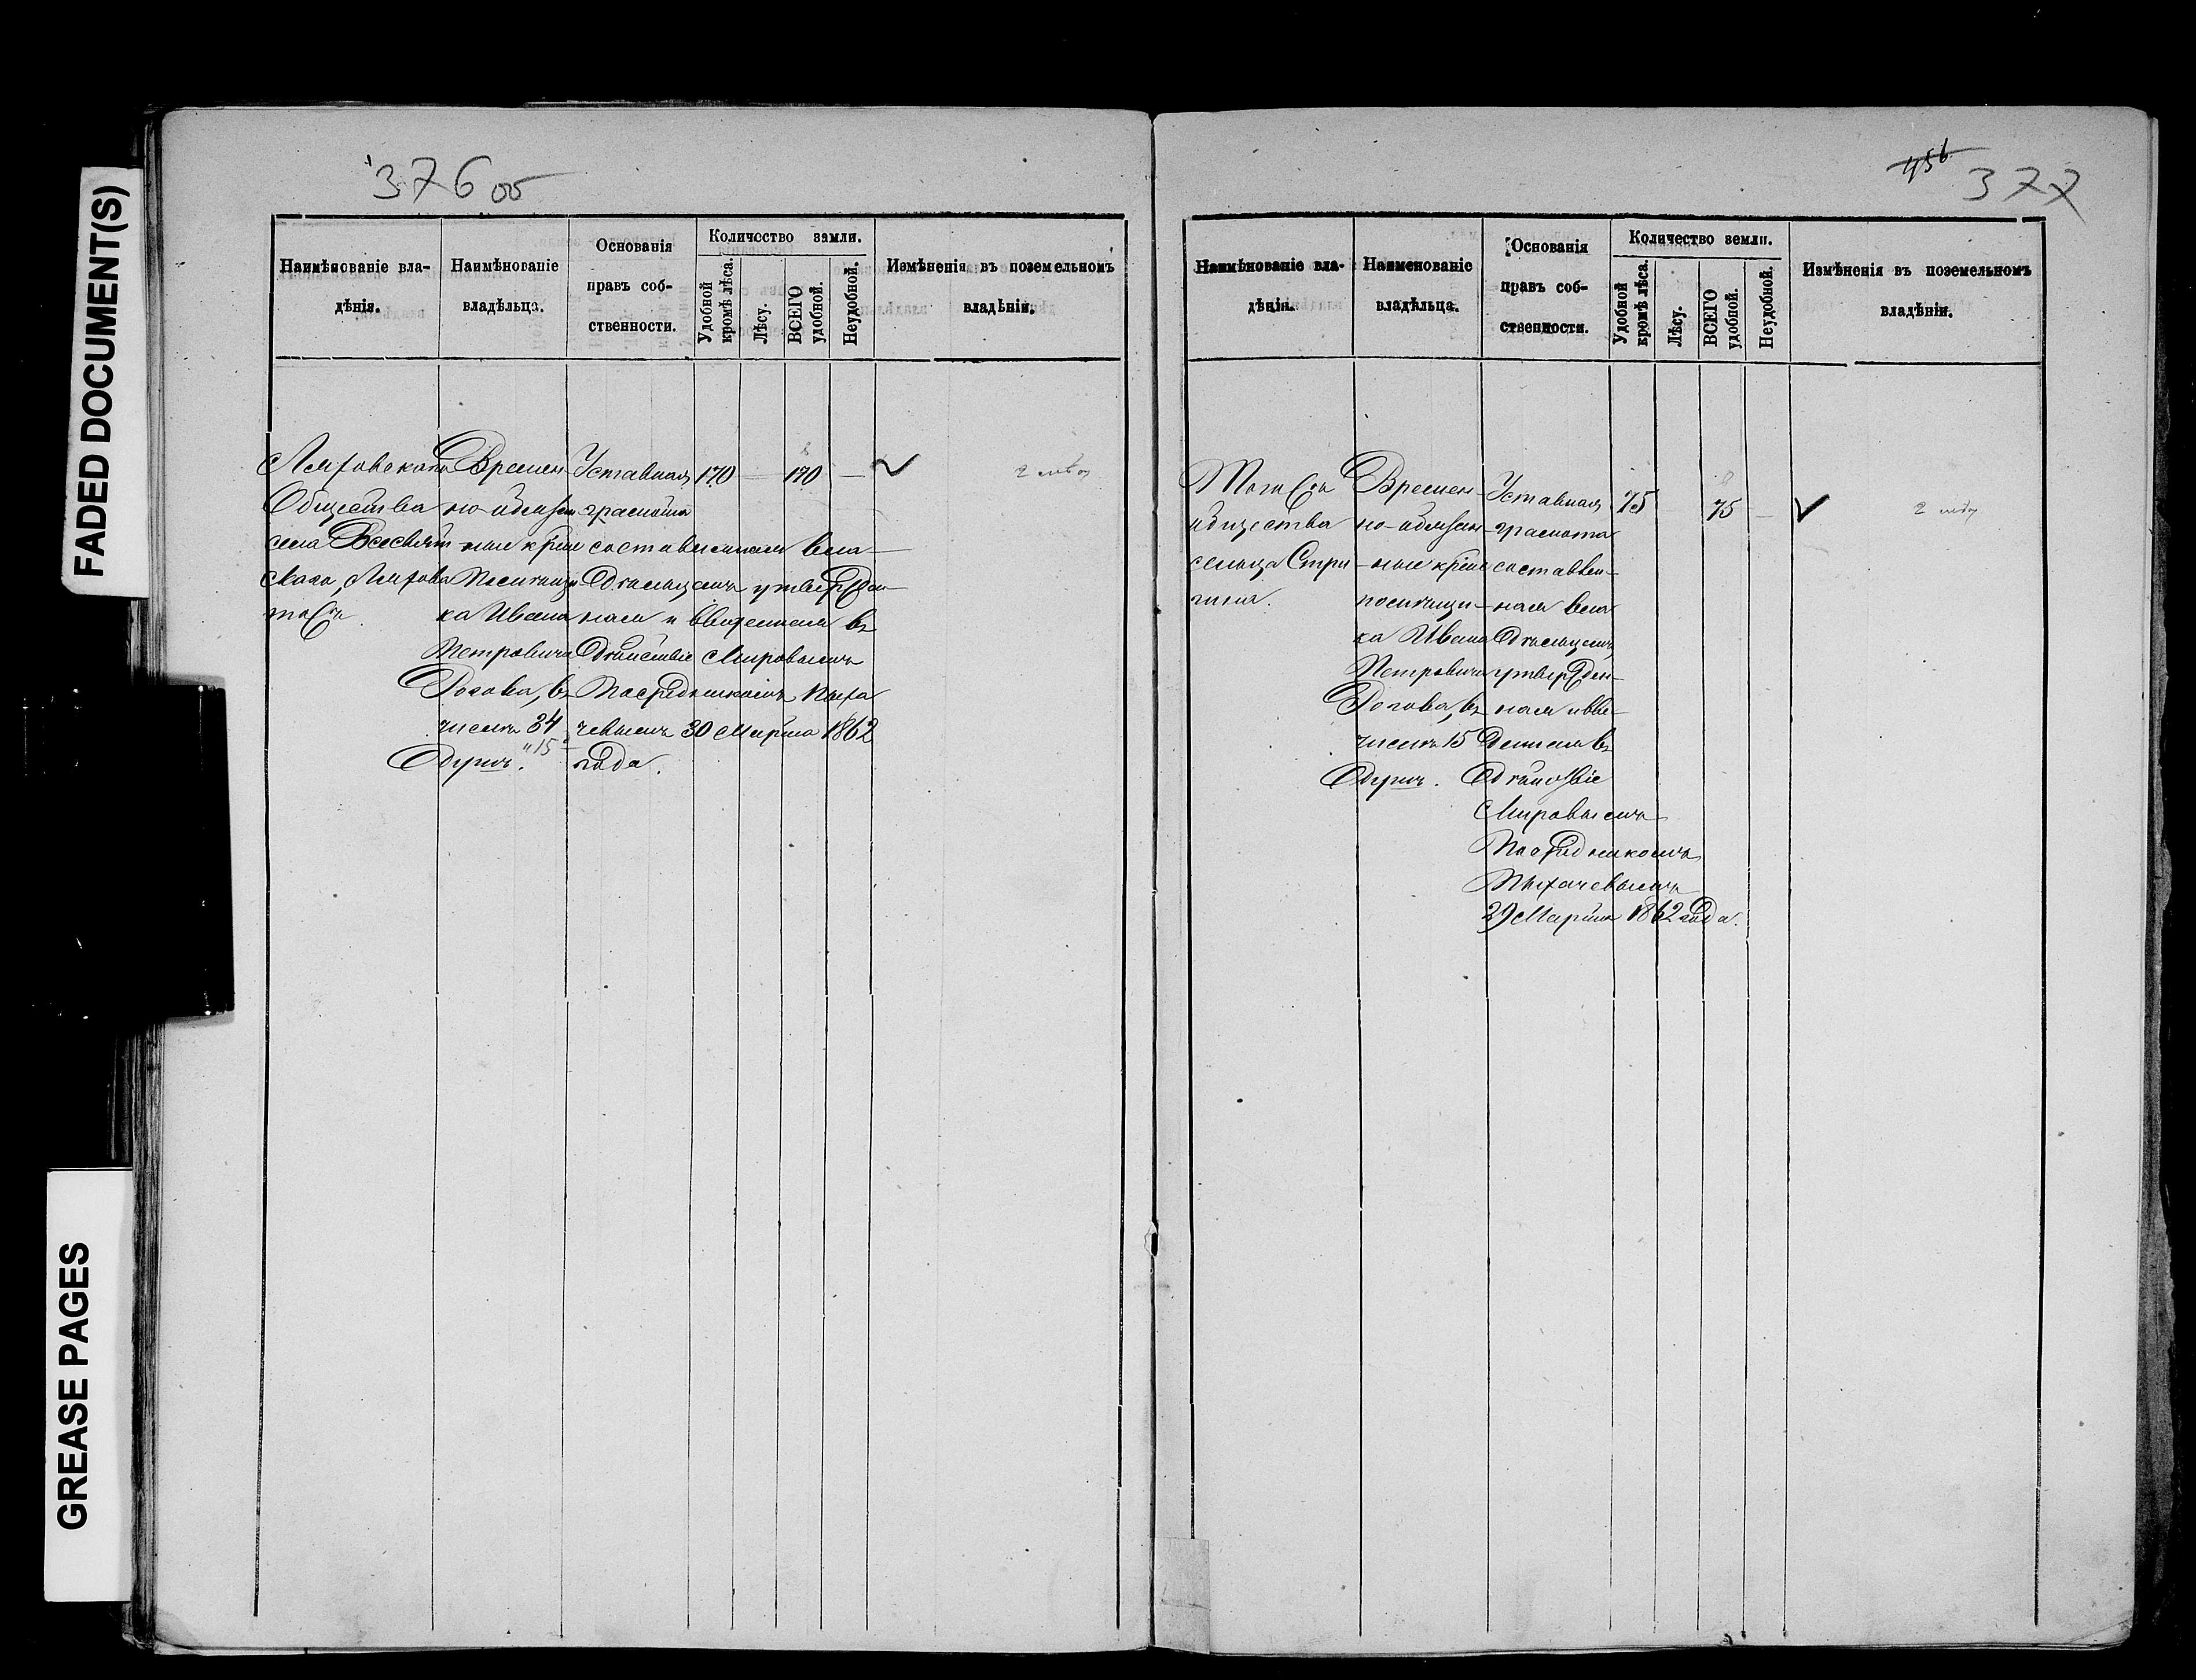 FADED DOCUMENT(S)
GREASE PAGES
376 об
Наимѣнованіе вла-
дѣнія.
Наимѣнованіе
владѣльца.
Основанія
правъ соб-
ственности.
Количество земли.
Удобной
кромѣ лѣса.
Лѣсу.
ВСЕГО
удобной.
Неудобной.
Измѣненія въ поземельномъ
владѣніи.
Общества
села Всесвят
скаго,
тожъ.
Времен-
но-обязан-
ные крѣс
Помѣщи
ка Ивана
Петровича
Рогова, въ
числѣ 34
"15"
душъ.
Уставная
грамота
составленная вла-
дѣльцемъ утвержден-
ная и введенная въ
дѣйствіе Мировымъ
Посредникомъ Пыха
чевымъ 30 Марта 1862
года.
170 — 170 —
456
377
Наимѣнованіе вла-
дѣнія.
Наименованіе
владѣльца.
Основанія
правъ соб-
ственности.
Количество земли.
Удобной
кромѣ лѣса.
Лѣсу.
ВСЕГО
удобной.
Неудобной.
Измѣненія въ поземельномъ
владѣніи.
Того жъ
общества
сельца Стри
гина.
Времен-
но-обязан-
ные крѣс
помѣщи-
ка Ивана
Петровича
Рогова, въ
числѣ 15
душъ.
Уставная
грамота
составлен-
ная вла
дѣльцемъ,
утвержден-
ная и вве-
денная въ
дѣйствіе
Мировымъ
Посредникомъ
Пыхачевымъ
29 Марта 1862 года.
75 75 —